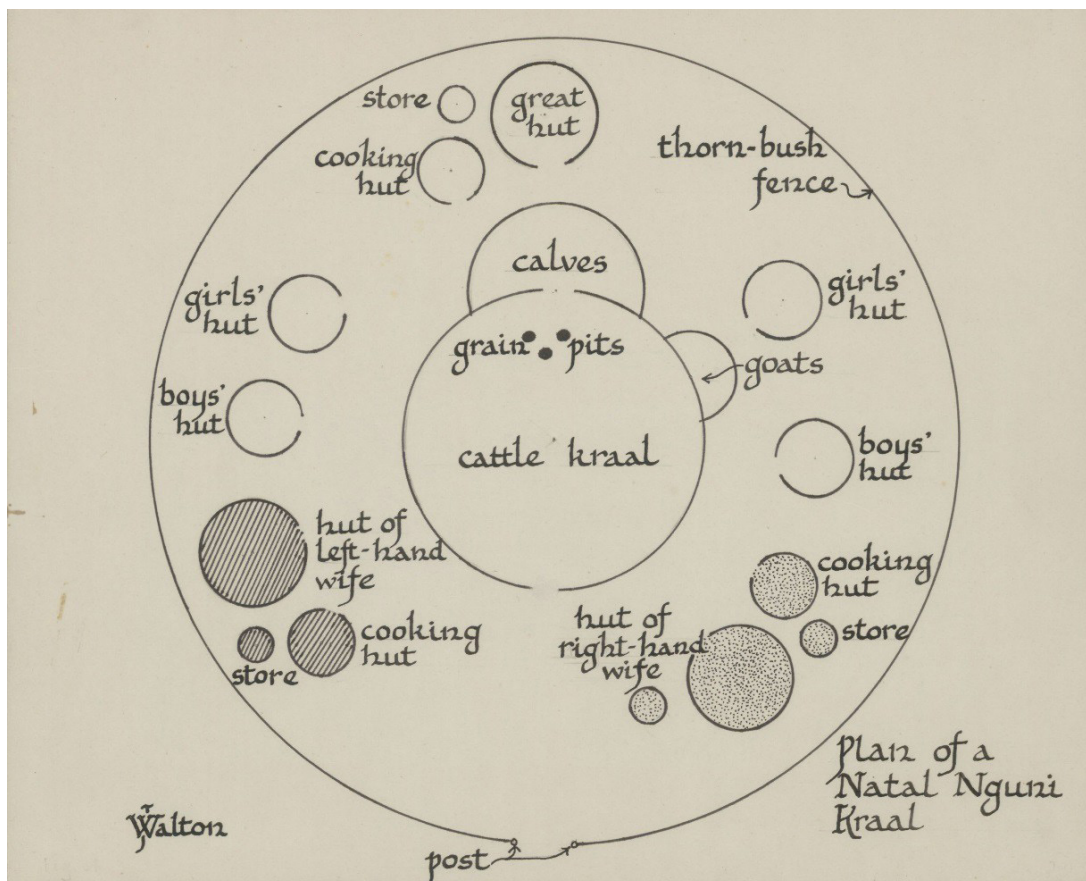 store
great
hut
cooking
hut
thorn-bush
fence
calves
girls'
hut
girls'
hut
grain pits
goats
boys'
hut
cattle kraal
boys'
hut
hut of
left-hand
wife
cooking
hut
store
cooking
hut
hut of
right-hand
wife
store
Plan of a
Natal Nguni
Kraal
JWalton
post